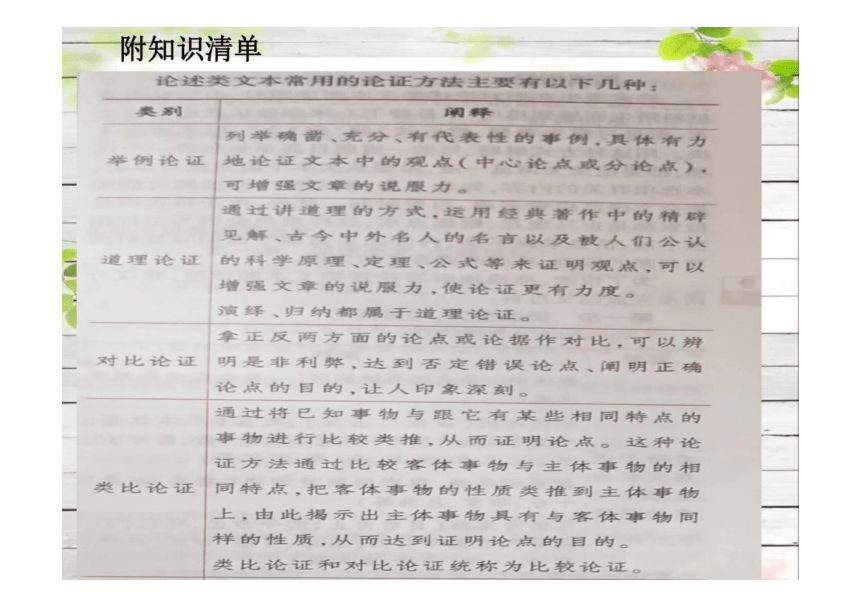 附知识清单
论述类文本常用的论证方法主要有以下几种：
类别 阐释
举例论证
列举确凿、充分、有代表性的事例，具体有力
地论证文本中的观点（中心论点或分论点），
可增强文章的说服力。
道理论证
通过讲道理的方式，运用经典著作中的精辟
见解、古今中外名人的名言以及被人们公认
的科学原理、定理、公式等来证明观点，可以
增强文章的说服力，使论证更有力度。
演绎、归纳都属于道理论证。
对比论证
拿正反两方面的论点或论据作对比，可以辨
明是非利弊，达到否定错误论点、阐明正确
论点的目的，让人印象深刻。
类比论证
通过将已知事物与跟它有某些相同特点的
事物进行比较类推，从而证明论点。这种论
证方法通过比较客体事物与主体事物的相
同特点，把客体事物的性质类推到主体事物
上，由此揭示出主体事物具有与客体事物同
样的性质，从而达到证明论点的目的。
类比论证和对比论证统称为比较论证。